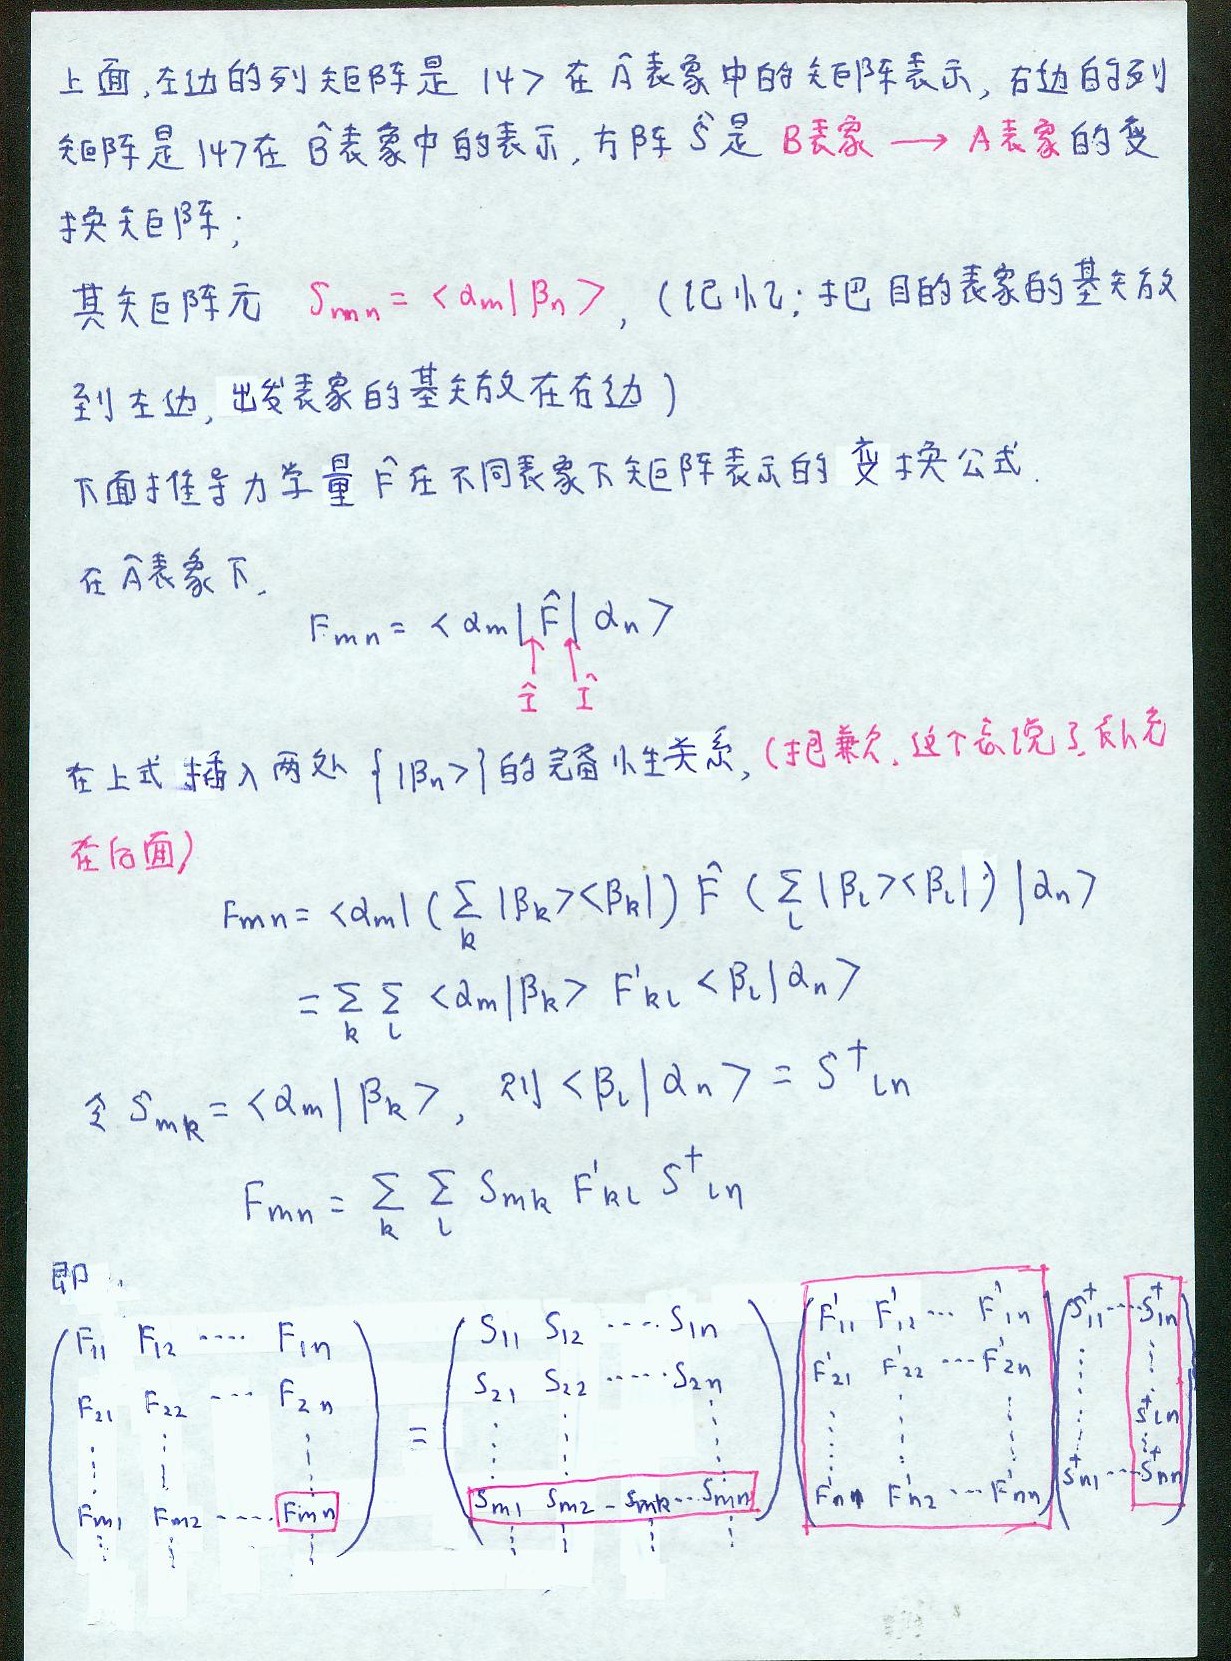 上面,左边的列矩阵是 |ψ> 在 Â表象中的矩阵表示,右边的列
矩阵是|ψ>在 B̂表象中的表示,方阵 Ŝ是 B表象 → A表象的变
换矩阵;
其矩阵元 Smn = <αm|βn>, (记忆:把目的表象的基矢放
到左边,出发表象的基矢放在右边)
下面推导力学量 F̂在不同表象下矩阵表示的变换公式.
在Â表象下,
Fmn = <αm|F̂|αn>
Î Î
在上式插入两处 {|βn>}的完备性关系, (抱歉,这个忘说了,补充
在后面)
Fmn = <αm| (∑k |βk><βk|) F̂ (∑l |βl><βl|) |αn>
= ∑k ∑l <αm|βk> F'kl <βl|αn>
令 Smk = <αm|βk>, 则 <βl|αn> = S†ln
Fmn = ∑k ∑l Smk F'kl S†ln
即
F11 F12 ···· F1n = S11 S12 ····· S1n F'11 F'12 ··· F'1n S†11 ··· S†1n
F21 F22 ··· F2n S21 S22 ····· S2n F'21 F'22 ··· F'2n
S†ln
Fm1 Fm2 ····· Fmn Sm1 Sm2 – Smk ··· Smn F'n1 F'n2 ··· F'nn S†n1 ··· S†nn